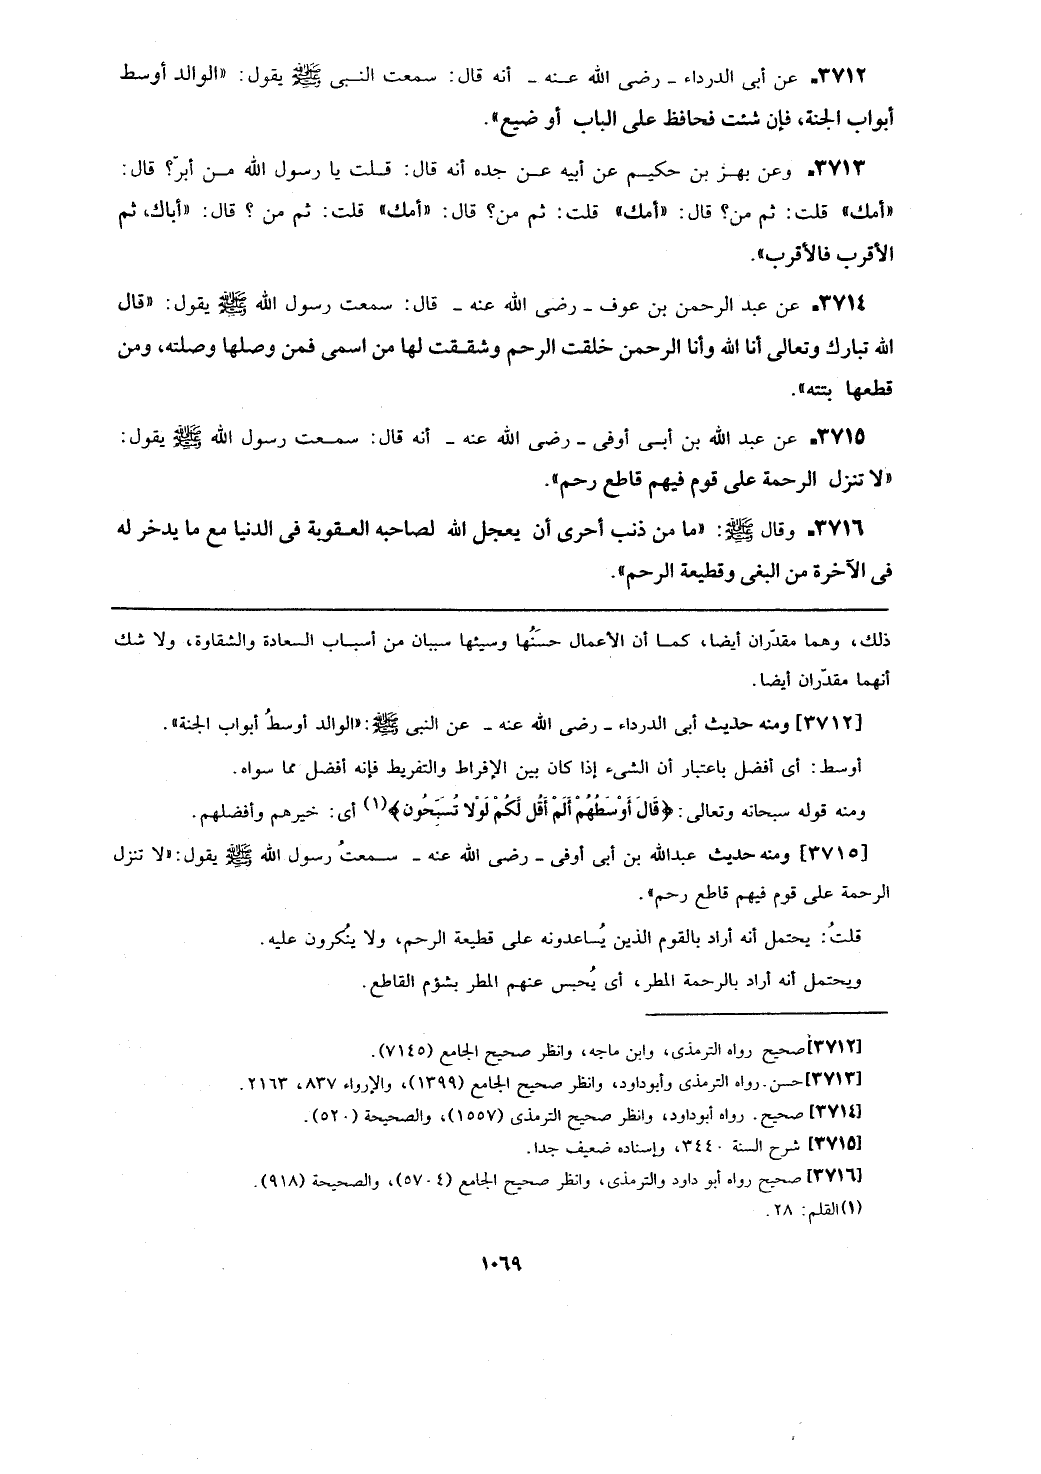 ٣٧١٢ـ عن أبى الدرداء ـ رضى الله عـنـه ـ أنه قال: سمعت النـبى ﷺ يقول: «الوالد أوسط
أبواب الجنة، فإن شئت فحافظ على الباب أو ضيع».
٣٧١٣ـ وعن بهـز بن حكيـم عن أبيه عـن جده أنه قال: قـلت يا رسول الله مـن أبرّ؟ قال:
«أمك» قلت: ثم من؟ قال: «أمك» قلت: ثم من؟ قال: «أمك» قلت: ثم من ؟ قال: «أباك، ثم
الأقرب فالأقرب».
٣٧١٤ـ عن عبد الرحمن بن عوف ـ رضى الله عنه ـ قال: سمعت رسول الله ﷺ يقول: «قال
الله تبارك وتعالى أنا الله وأنا الرحمن خلقت الرحم وشقـقت لها من اسمى فمن وصلها وصلته، ومن
قطعها بتته».
٣٧١٥ـ عن عبد الله بن أبـى أوفى ـ رضى الله عنه ـ أنه قال: سمـعت رسول الله ﷺ يقول:
«لا تنزل الرحمة على قوم فيهم قاطع رحم».
٣٧١٦ـ وقال ﷺ: «ما من ذنب أحرى أن يعجل الله لصاحبه العـقوبة فى الدنيا مع ما يدخر له
فى الآخرة من البغى وقطيعة الرحم».
ذلك، وهما مقدّران أيضا، كمـا أن الأعمال حسَنُها وسيئها سببان من أسبـاب السعادة والشقاوة، ولا شك
أنهما مقدّران أيضا.
[٣٧١٢] ومنه حديث أبى الدرداء ـ رضى الله عنه ـ عن النبى ﷺ:«الوالد أوسطُ أبواب الجنة».
أوسط: أى أفضل باعتبار أن الشىء إذا كان بين الإفراط والتفريط فإنه أفضل مما سواه.
ومنه قوله سبحانه وتعالى: ﴿قَالَ أَوْسَطُهُمْ أَلَمْ أَقُل لَّكُمْ لَوْلا تُسَبِّحُون﴾(١) أى: خيرهم وأفضلهم.
[٣٧١٥] ومنه حديث عبدالله بن أبى أوفى ـ رضى الله عنه ـ سـمعتُ رسول الله ﷺ يقول:«لا تنزل
الرحمة على قوم فيهم قاطع رحم».
قلتُ: يحتمل أنه أراد بالقوم الذين يُساعدونه على قطيعة الرحم، ولا ينُكرون عليه.
ويحتمل أنه أراد بالرحمة المطر، أى يُحبس عنهم المطر بشؤم القاطع.
[٣٧١٢]صحيح رواه الترمذى، وابن ماجه، وانظر صحيح الجامع (٧١٤٥).
[٣٧١٣]حسن. رواه الترمذى وأبوداود، وانظر صحيح الجامع (١٣٩٩)، والإرواء ٨٣٧، ٢١٦٣.
[٣٧١٤] صحيح. رواه أبوداود، وانظر صحيح الترمذى (١٥٥٧)، والصحيحة (٥٢٠).
[٣٧١٥] شرح السنة ٣٤٤٠، وإسناده ضعيف جدا.
[٣٧١٦] صحيح رواه أبو داود والترمذى، وانظر صحيح الجامع (٥٧٠٤)، والصحيحة (٩١٨).
(١)القلم: ٢٨.
١٠٦٩